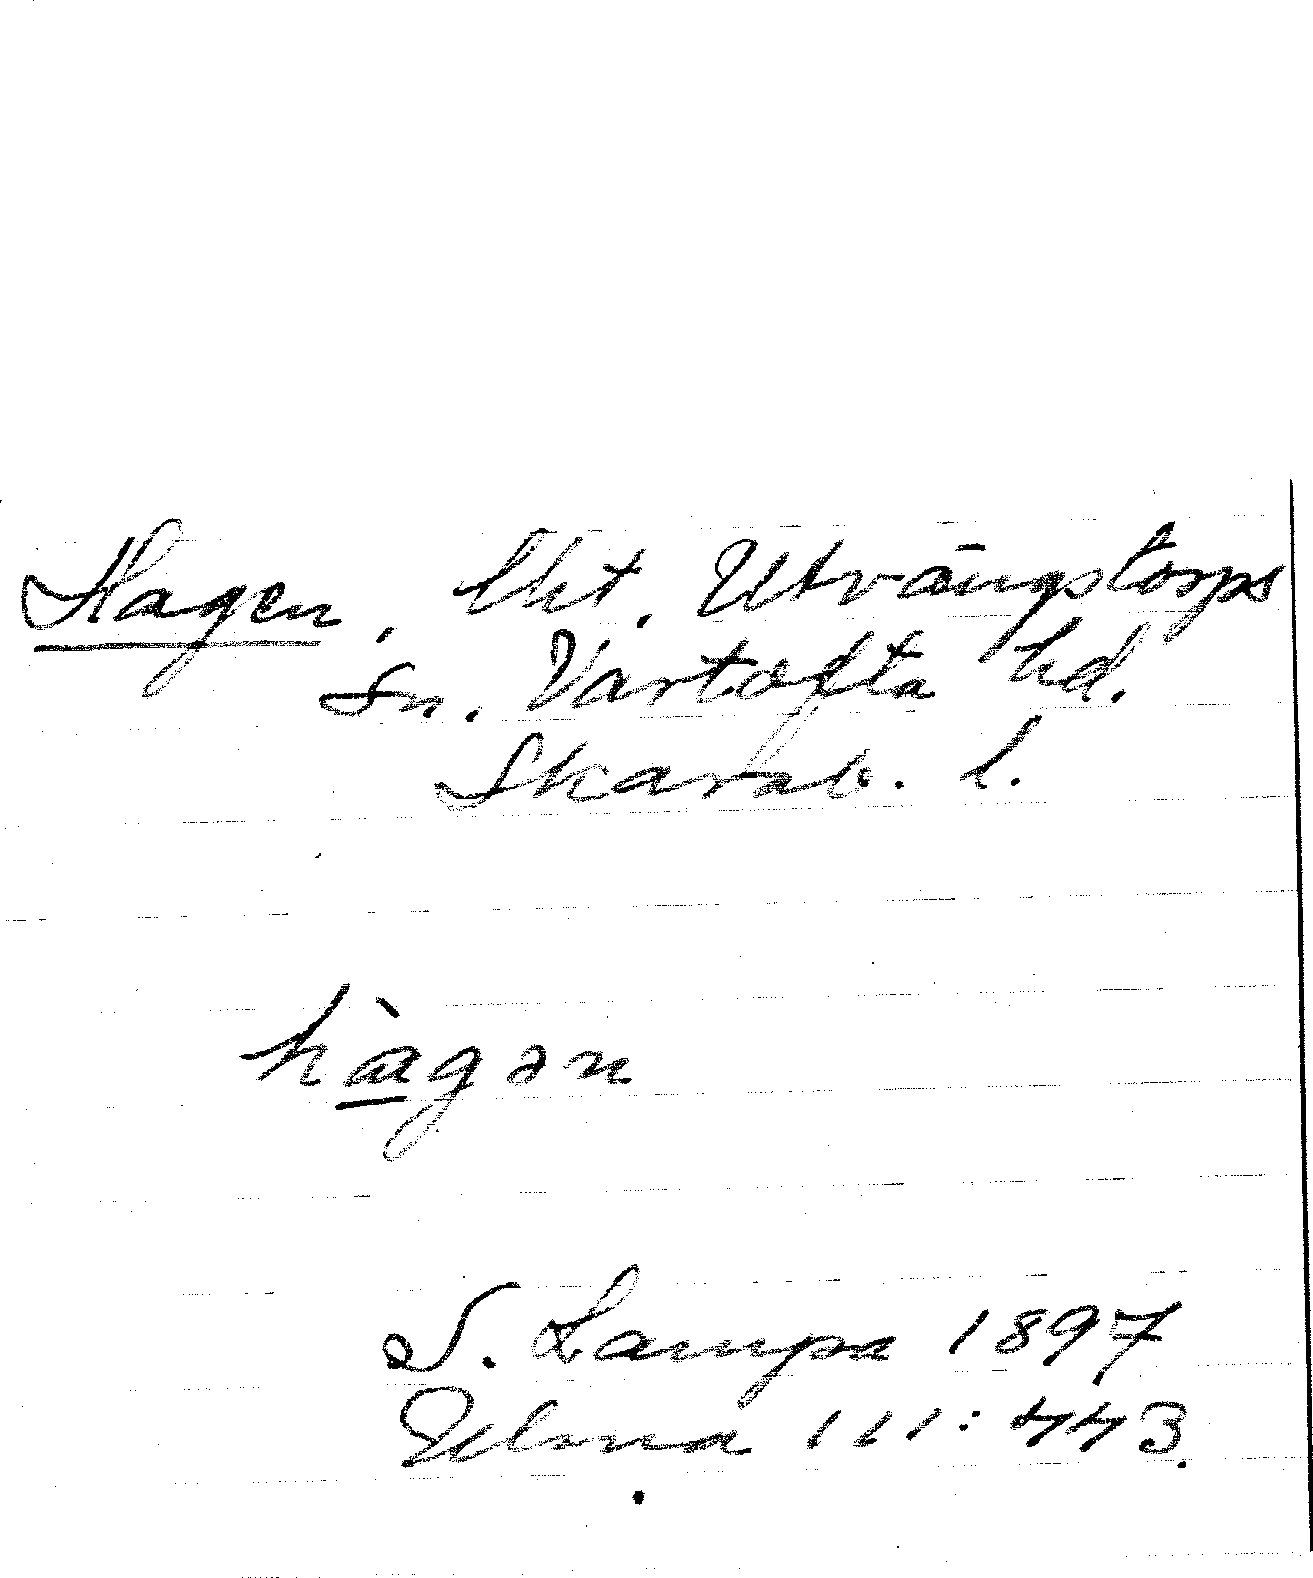 Hagen, lht, Utvängstorps
Sn. Vartofta hd.
Skarab. l.
hàgən
S. Lampa 1897
Ulma 111:443.